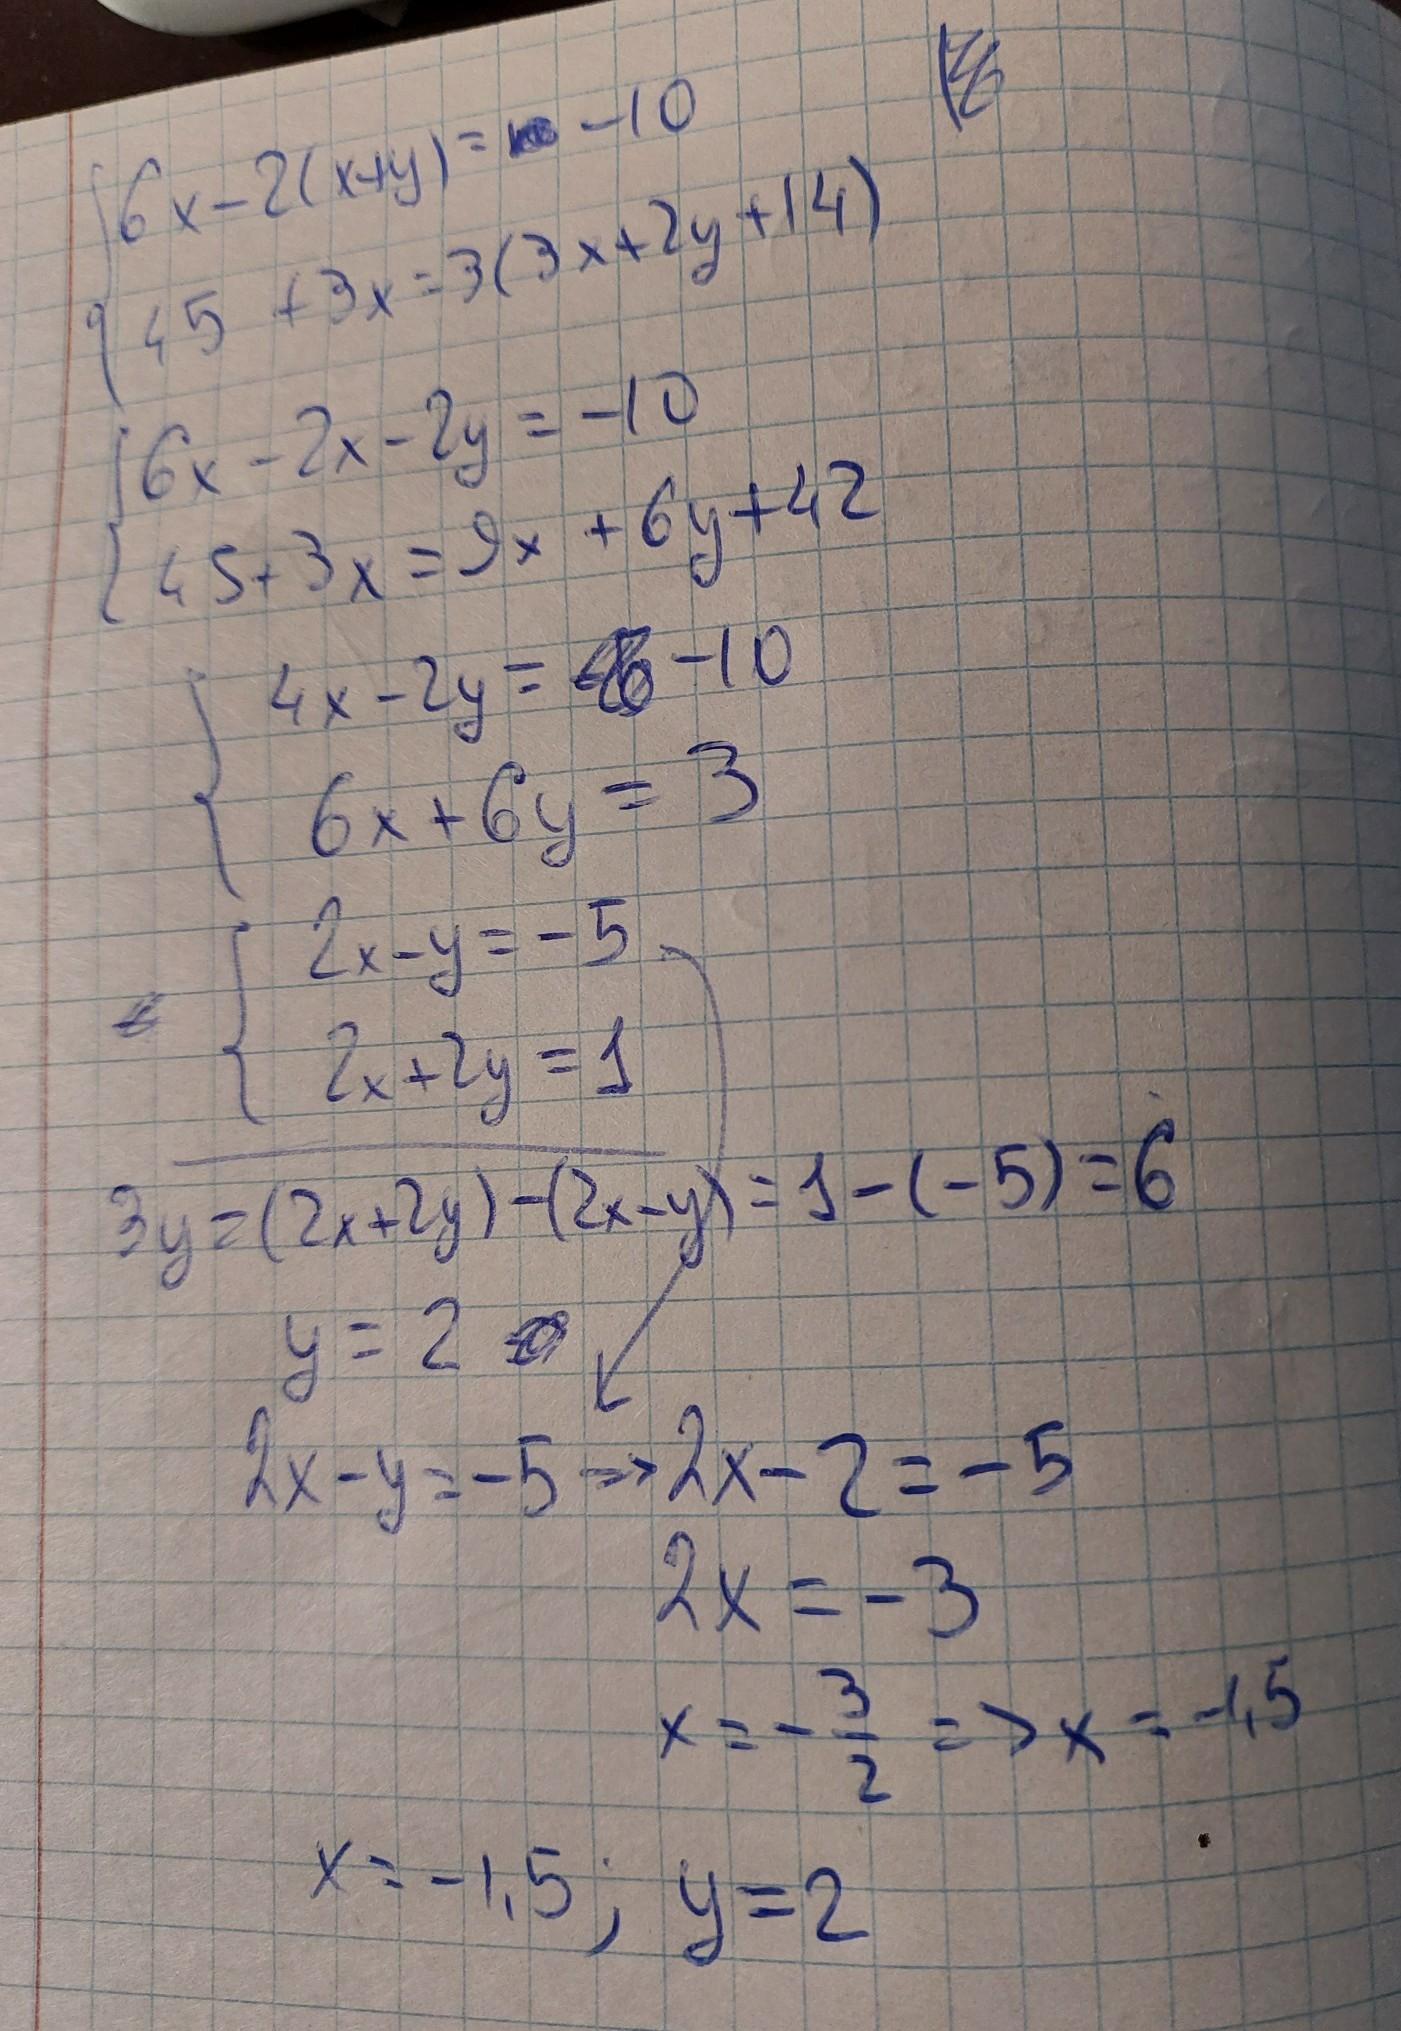 6x-2(x+y)= -10
45 +3x=3(3x+2y+14)
6x-2x-2y=-10
45+3x=9x+6y+42
4x-2y= -10
6x+6y=3
2x-y=-5
2x+2y=1
3y=(2x+2y)-(2x-y)=1-(-5)=6
y=2
2x-y=-5=>2x-2=-5
2x=-3
x=-3/2 => x=-1,5
x=-1,5; y=2